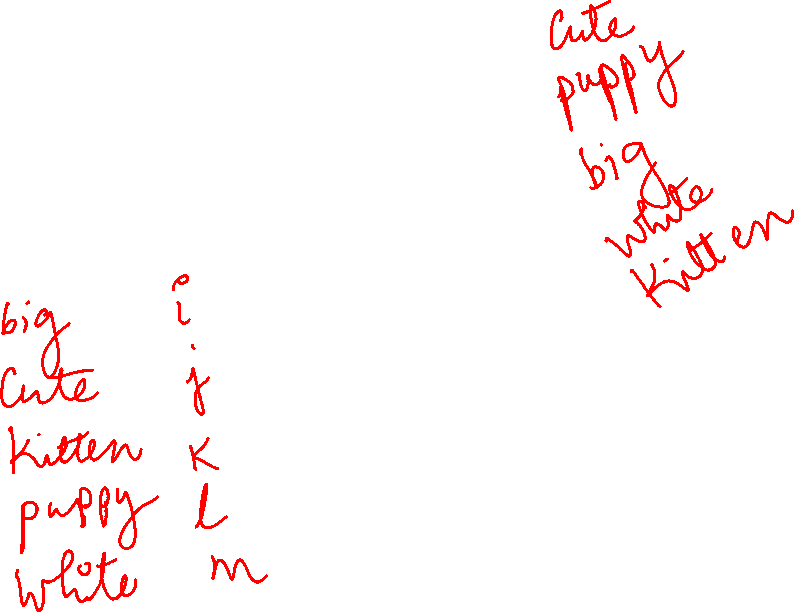 Cute
puppy
big
white
Kitten
big i
Cute j
Kitten k
puppy l
white m